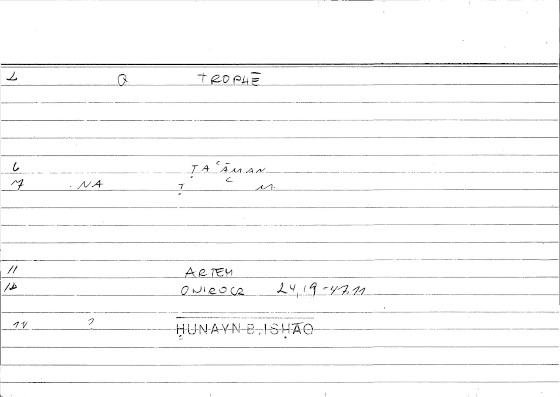 1 Q TROPHĒ
6 ṬAʿĀMAN
7 NA Ṭ C M
11 ARTEM
12 ONIROCR 24,19-47,11
14 ? ḤUNAYN B. ISḤĀQ